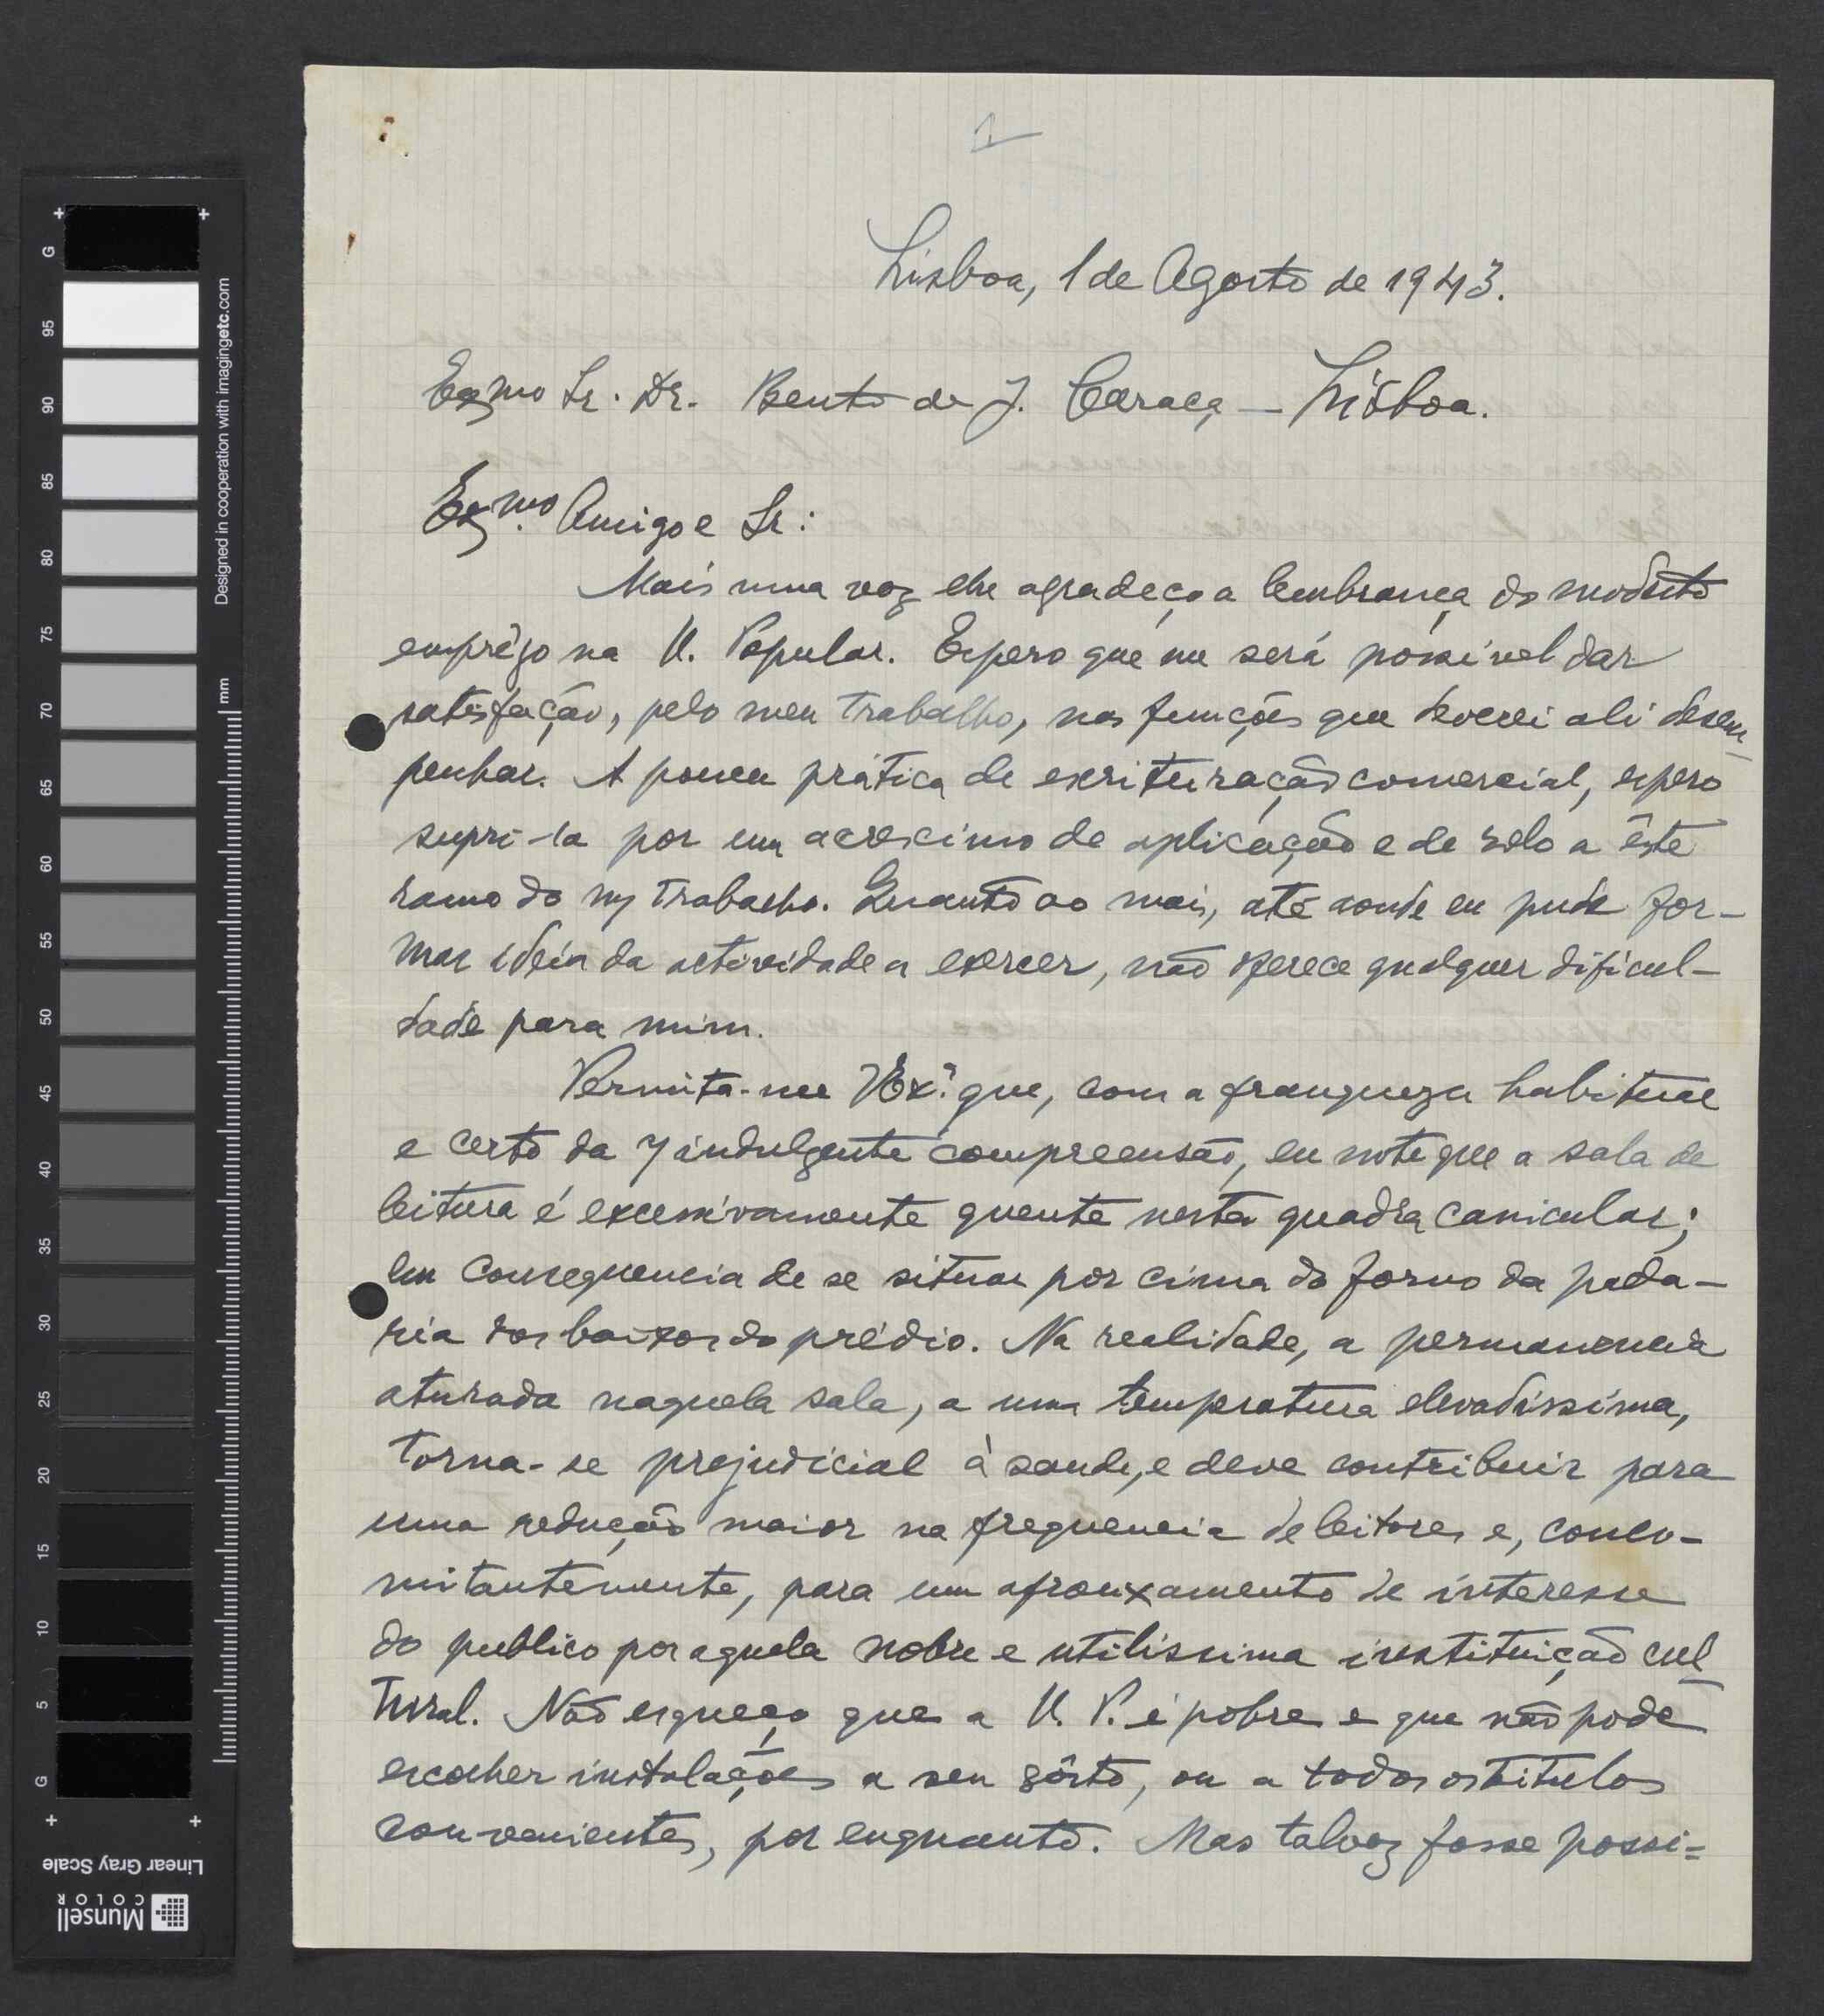 1
Lisboa, 1 de Agosto de 1943.
Exmo Sr. Dr. Bento de J. Caraça — Lisboa.
Exmo. Amigo e Sr:
Mais uma vez lhe agradeço a lembrança do modesto
emprêgo na U. Popular. Espero que me será possivel dar
satisfação, pelo meu trabalho, nas funções que deverei ali desem-
penhar. A pouca prática de escrituração comercial, espero
supri-la por um acrescimo de aplicação e de zelo a êste
ramo do m/ trabalho. Quanto ao mais, até aonde eu pude for-
mar ideia da actividade a exercer, não oferece qualquer dificul-
dade para mim.
Permita-me V Ex.ª que, com a franqueza habitual
e certo da indulgente compreensão, eu note que a sala de
leitura é excessivamente quente nesta quadra canicular;
em consequencia de se situar por cima do forno da pada-
ria dos baixos do prédio. Na realidade, a permanencia
aturada naquela sala, a uma temperatura elevadissima,
torna-se prejudicial à saude, e deve contribuir para
uma redução maior na frequencia de leitores e, conco-
mitantemente, para um afrouxamento de interesse
do publico por aquela nobre e utilissima instituição cul-
tural. Não esqueço que a U. P. é pobre e que não pode
escolher instalações a seu gôsto, ou a todos os titulos
convenientes, por enquanto. Mas talvez fosse possi=
G
95
90
85
80
75
70
65
60
55
50
45
40
35
30
25
20
15
10
5
G
Designed in cooperation with imagingetc.com
mm
Linear Gray Scale
Munsell
COLOR